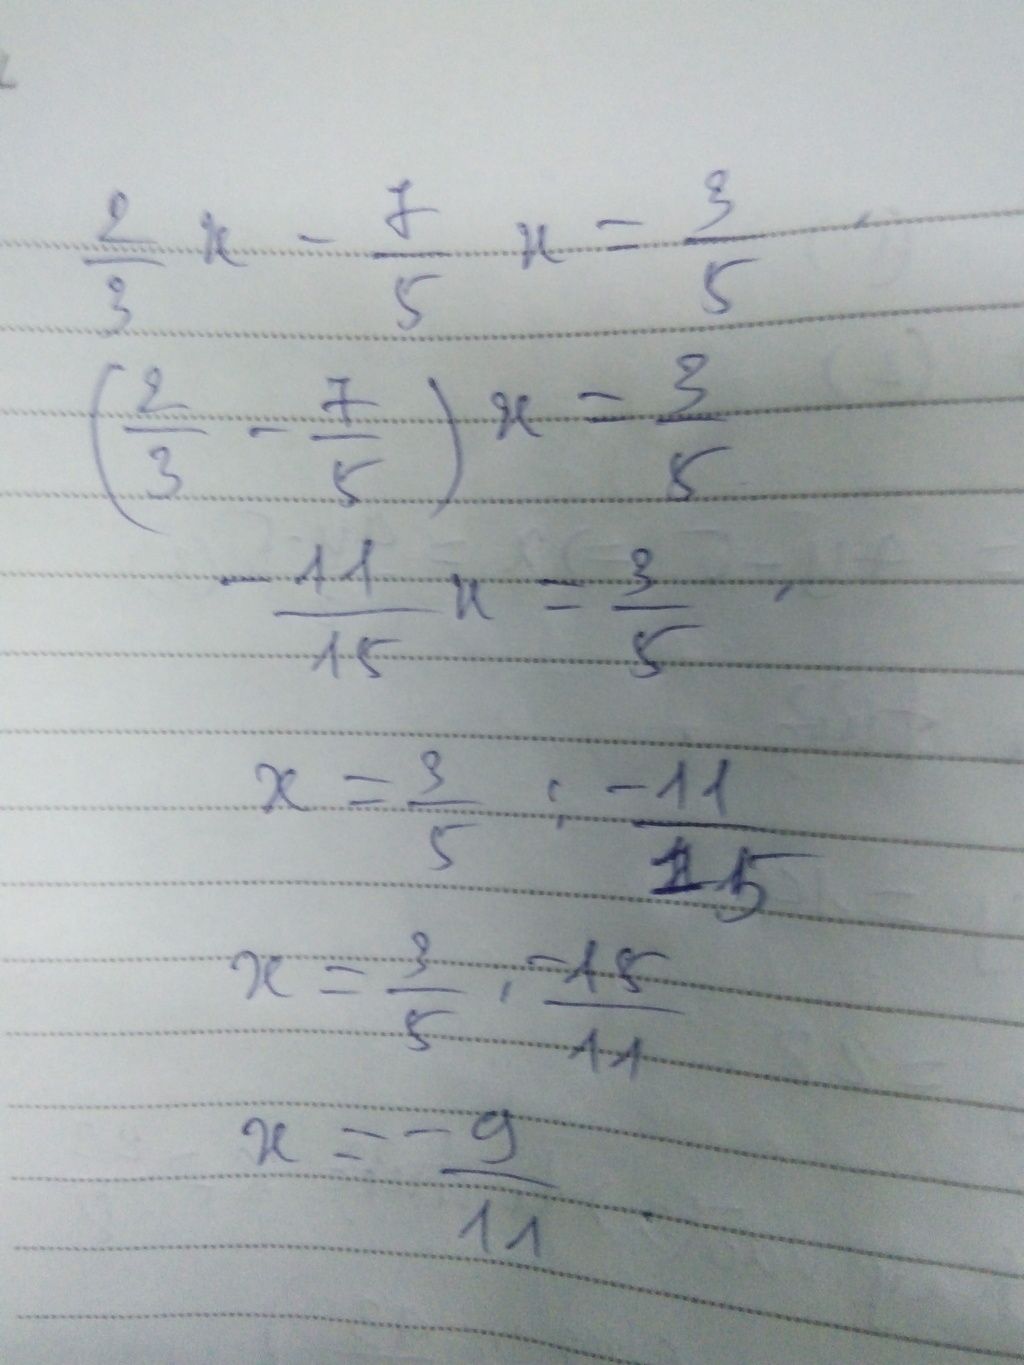 2/3 x - 7/5 x = 3/5
(2/3 - 7/5) x = 3/5
-11/15 x = 3/5
x = 3/5 : -11/15
x = 3/5 . -15/11
x = -9/11